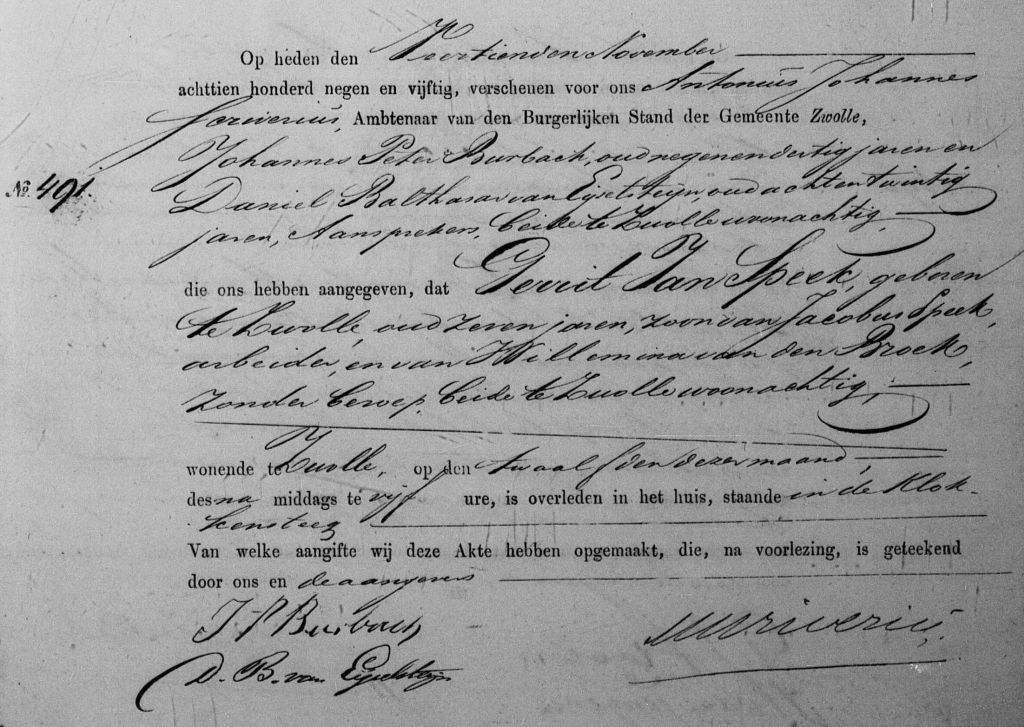 Op heden den Veertienden November
achttien honderd negen en vijftig, verschenen voor ons Antonius Johannes
Scriverius, Ambtenaar van den Burgerlijken Stand der Gemeente Zwolle,
Johannes Peter Burbach, oud negenendertig jaren en
No. 491. Daniel Balthasar van Eijselsteijn, oud achtentwintig
jaren, Aansprekers, beide te Zwolle woonachtig,
die ons hebben aangegeven, dat Gerrit Jan Speek, geboren
te Zwolle, oud zeven jaren, zoon van Jacobus Speek,
arbeider, en van Willemina van den Broek,
zonder beroep, beide te Zwolle woonachtig,
wonende te Zwolle, op den twaalfden dezer maand,
des na middags te vijf ure, is overleden in het huis, staande in de Klok-
kensteeg
Van welke aangifte wij deze Akte hebben opgemaakt, die, na voorlezing, is geteekend
door ons en de aangevers
J P Burbach
D. B. van Eijselsteijn